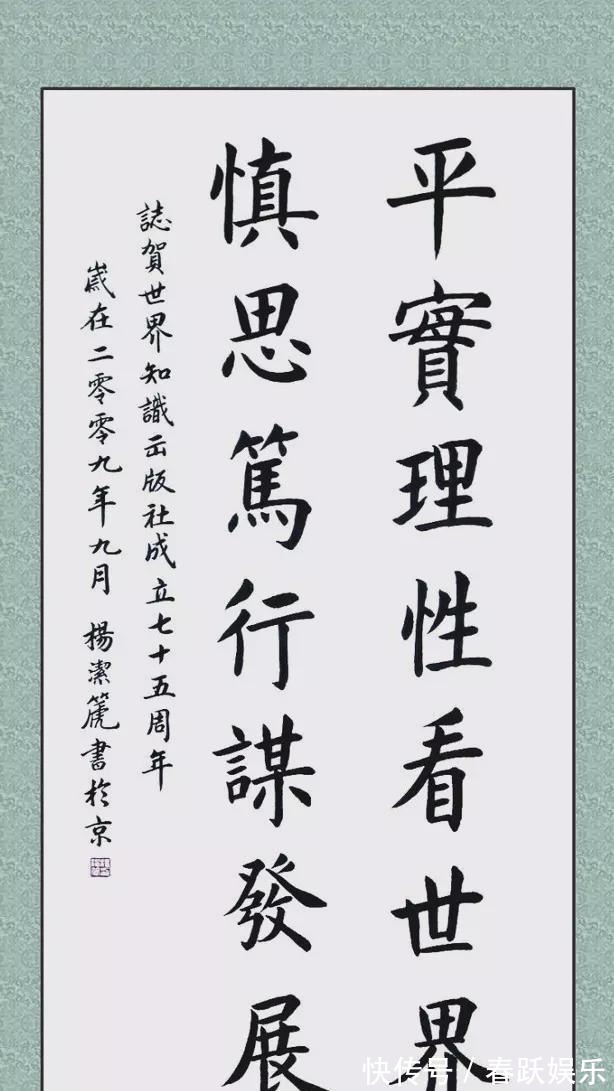 平實理性看世界
慎思篤行謀發展
誌賀世界知識出版社成立七十五周年
歲在二零零九年九月 楊潔篪書於京
快传号 / 春跃娱乐